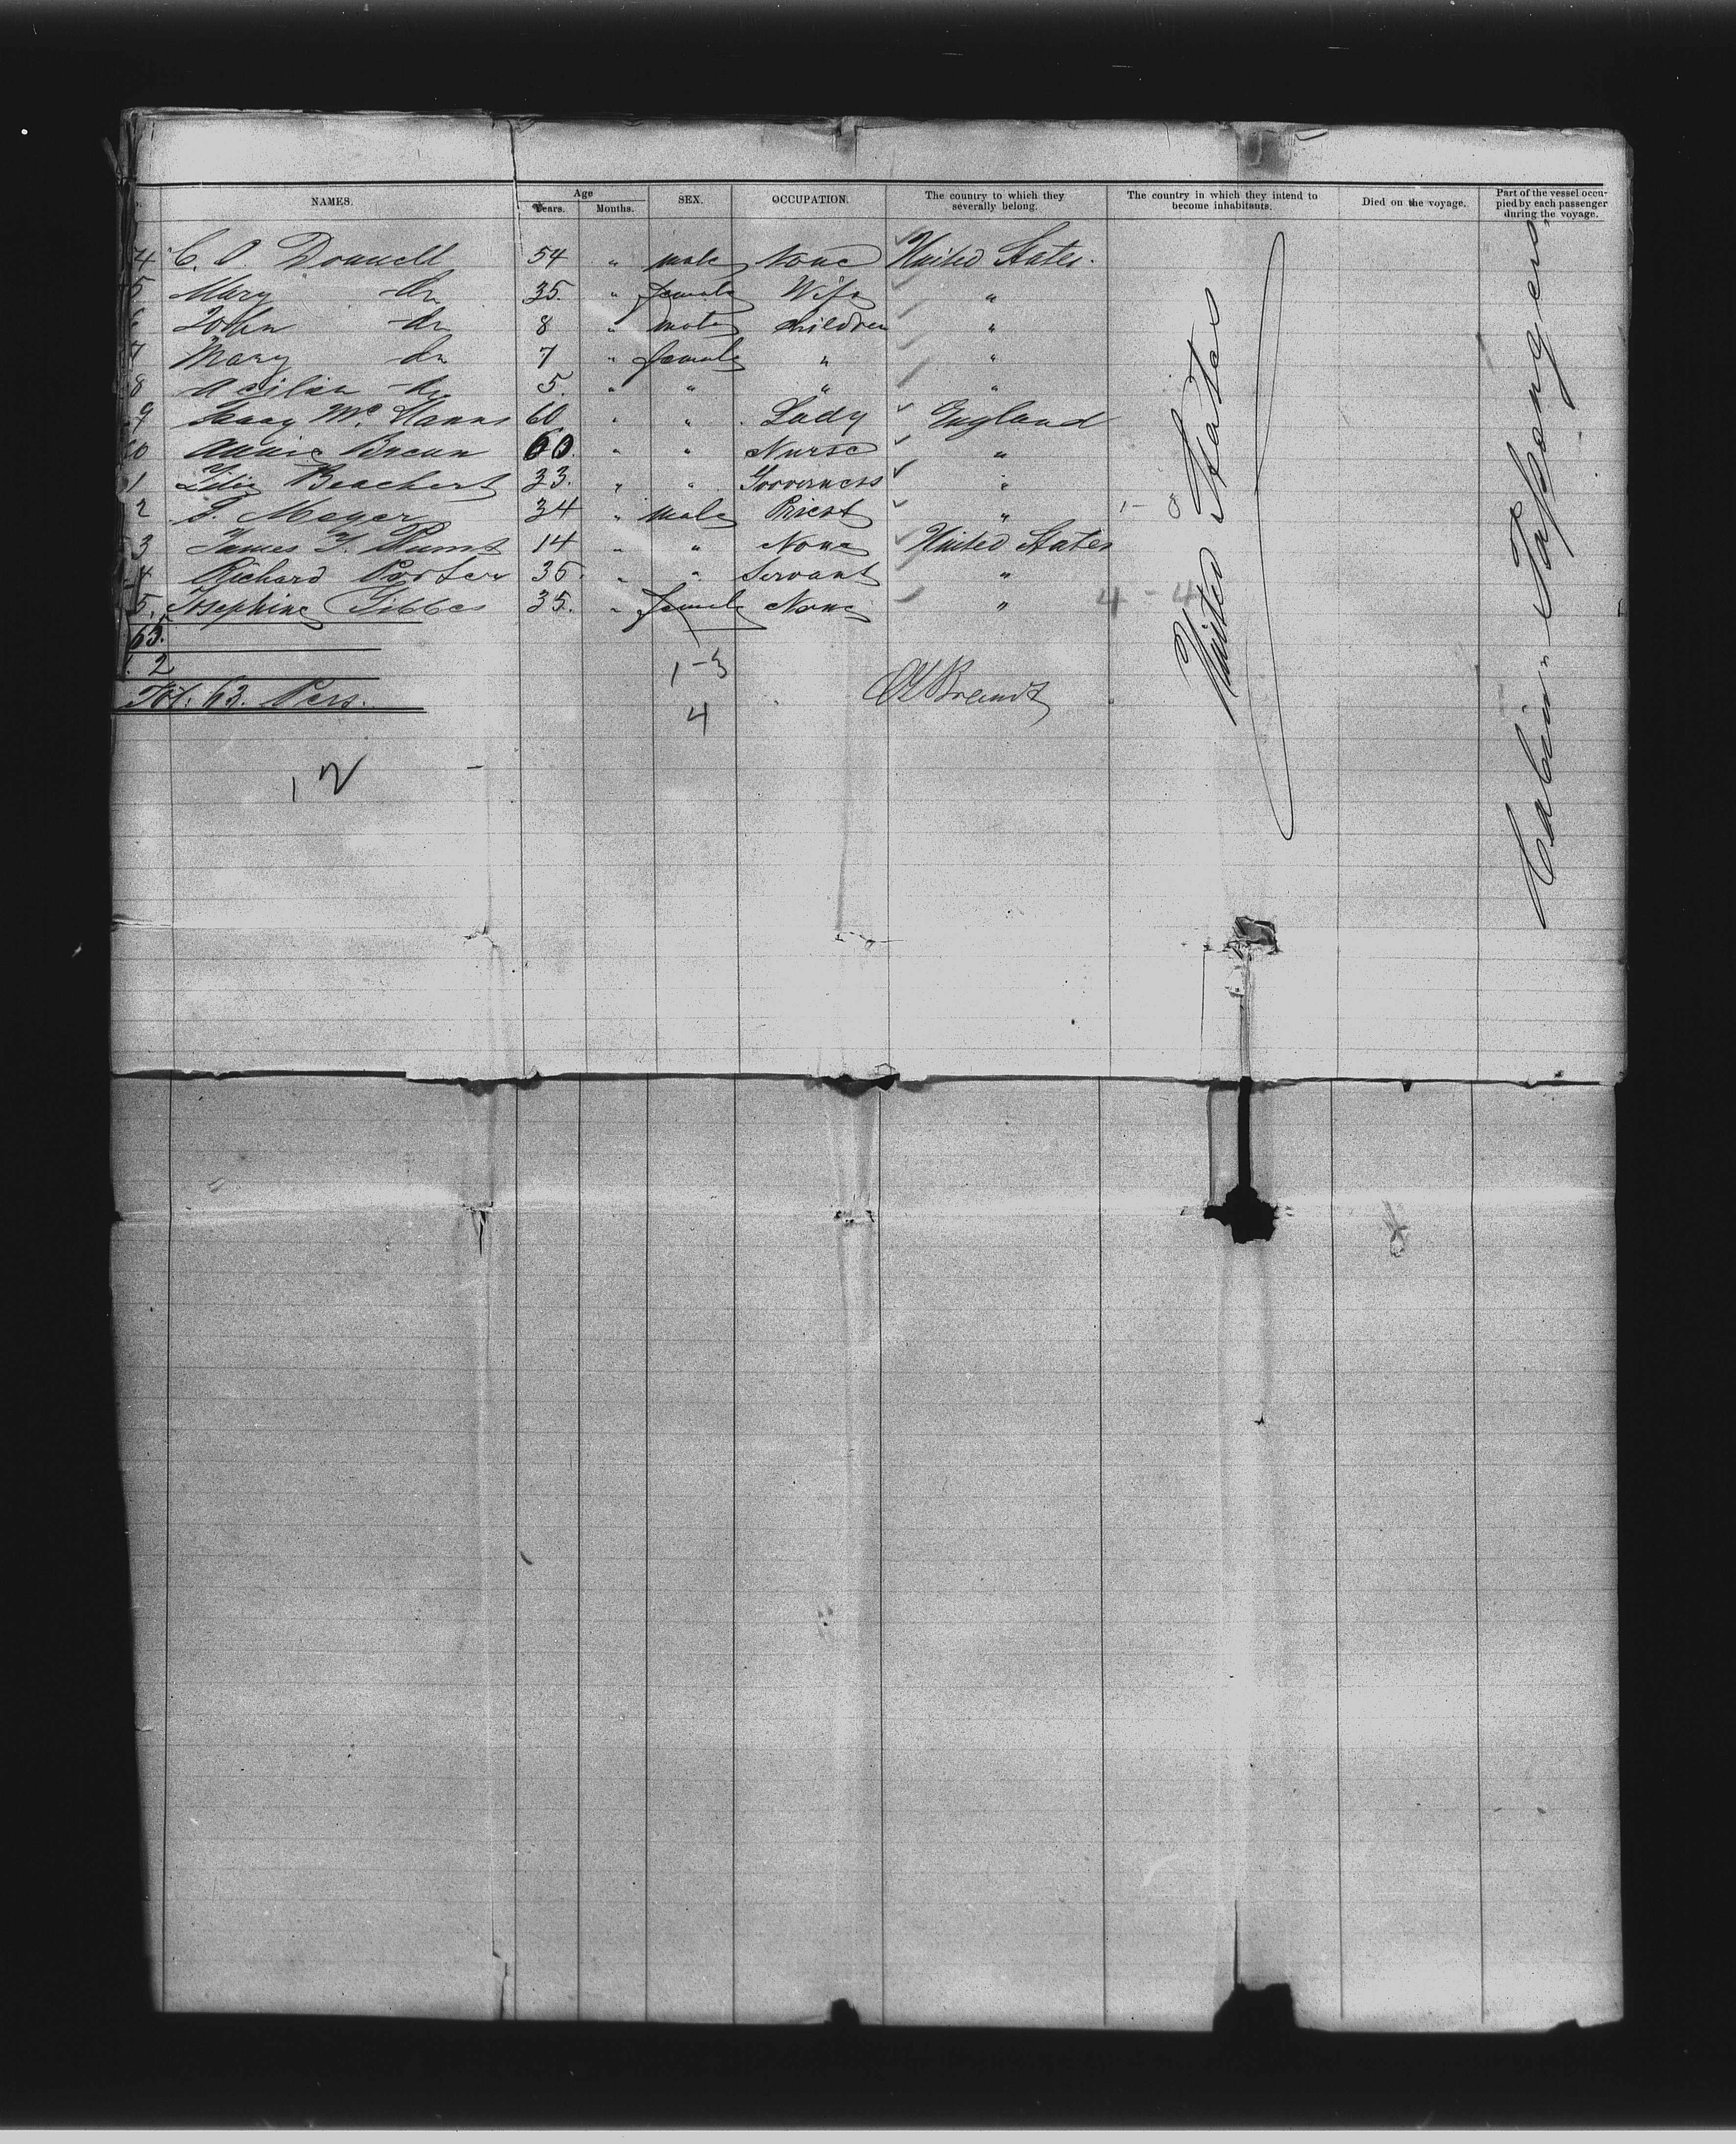 NAMES. Age Years. Months. SEX. OCCUPATION. The country to which they severally belong. The country in which they intend to become inhabitants. Died on the voyage. Part of the vessel occupied by each passenger during the voyage.
4 C. O Donnell 54 " male None United States.
5 Mary do 35. " female Wife "
6 John do 8 " male children "
7 Mary do 7 " female " "
8 do 5. " " " "
9 Mc Hanns 60 " " Lady England
0 Annie Breun 60. " " Nurse "
1 Beachert 33. " " Governess "
2 Meyer 34 " male Priest "
3 James T. 14 " " None United States
4 Richard Porter 35. " " Servant "
5. Josephine Gibbes 35. " female None "
65.
2
Tot. 63. Pers.
1-3
4
Brandt
12
1-3
4-4
United States
Cabin-Passengers